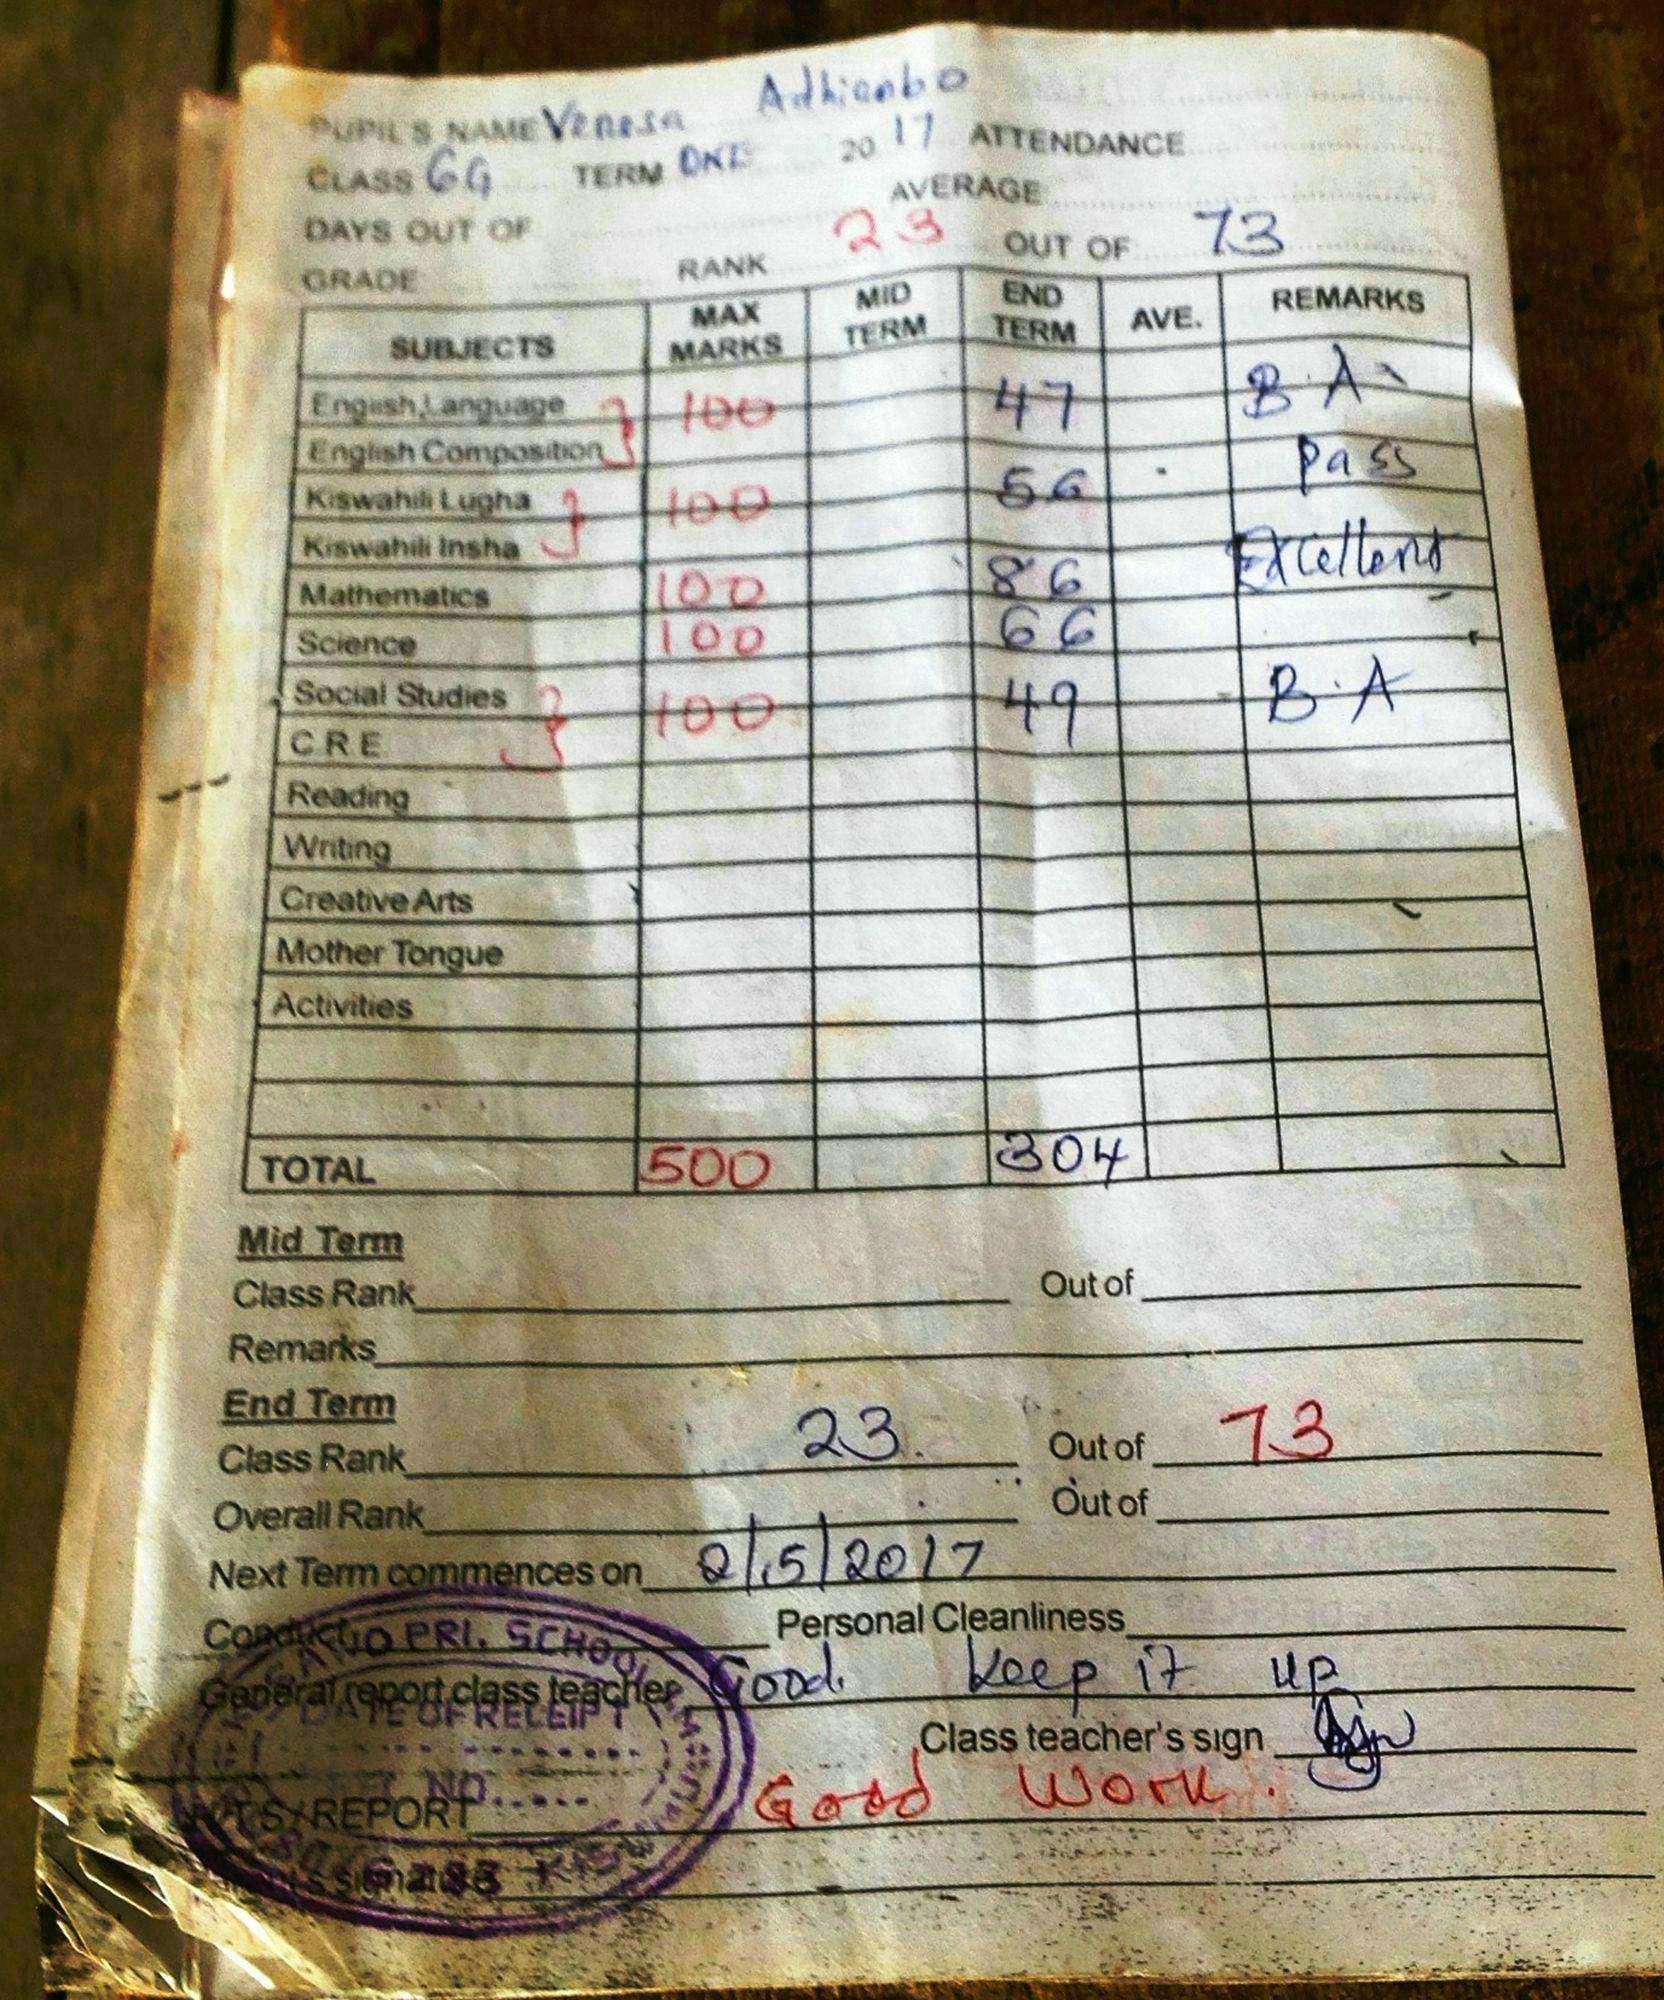 PUPIL'S NAME Venesa Adhianbo
CLASS 6G TERM ONE 2017 ATTENDANCE
DAYS OUT OF AVERAGE
GRADE RANK 23 OUT OF 73
SUBJECTS MAX MARKS MID TERM END TERM AVE. REMARKS
English Language 100 47 B.A
English Composition
Kiswahili Lugha 100 56 Pass
Kiswahili Insha
Mathematics 100 86 Excellent
Science 100 66
Social Studies 100 49 B.A
C R E
Reading
Writing
Creative Arts
Mother Tongue
Activities
TOTAL 500 304
Mid Term
Class Rank Out of
Remarks
End Term
Class Rank 23 Out of 73
Overall Rank Out of
Next Term commences on 2/5/2017
Conduct Personal Cleanliness
General report class teacher Good. Keep it up
Class teacher's sign
REPORT Good Work.
PRI. SCHOOL
DATE OF RECEIPT
NO.